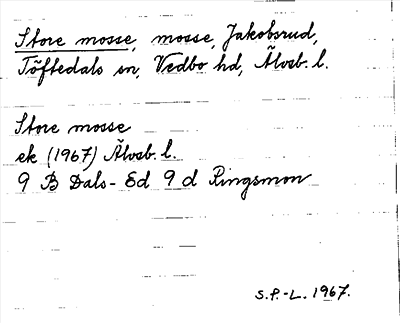 Store mosse, mosse, Jakobsrud,
Töftedals sn, Vedbo hd, Älvsb. l.
Store mosse
ek (1967) Älvsb. l.
9 B Dals-Ed 9 d Ringsmon
S.P.-L. 1967.